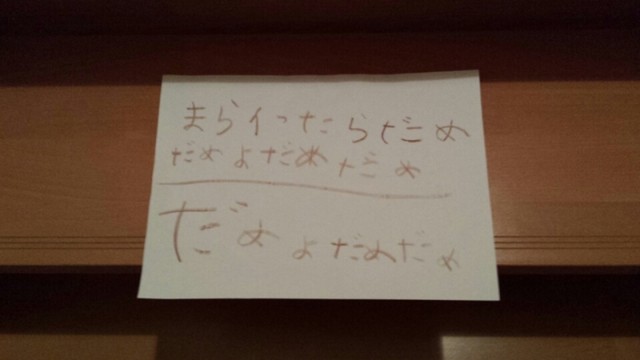 まらイったらだめ
だめよだめだめ
だめよだめだめ